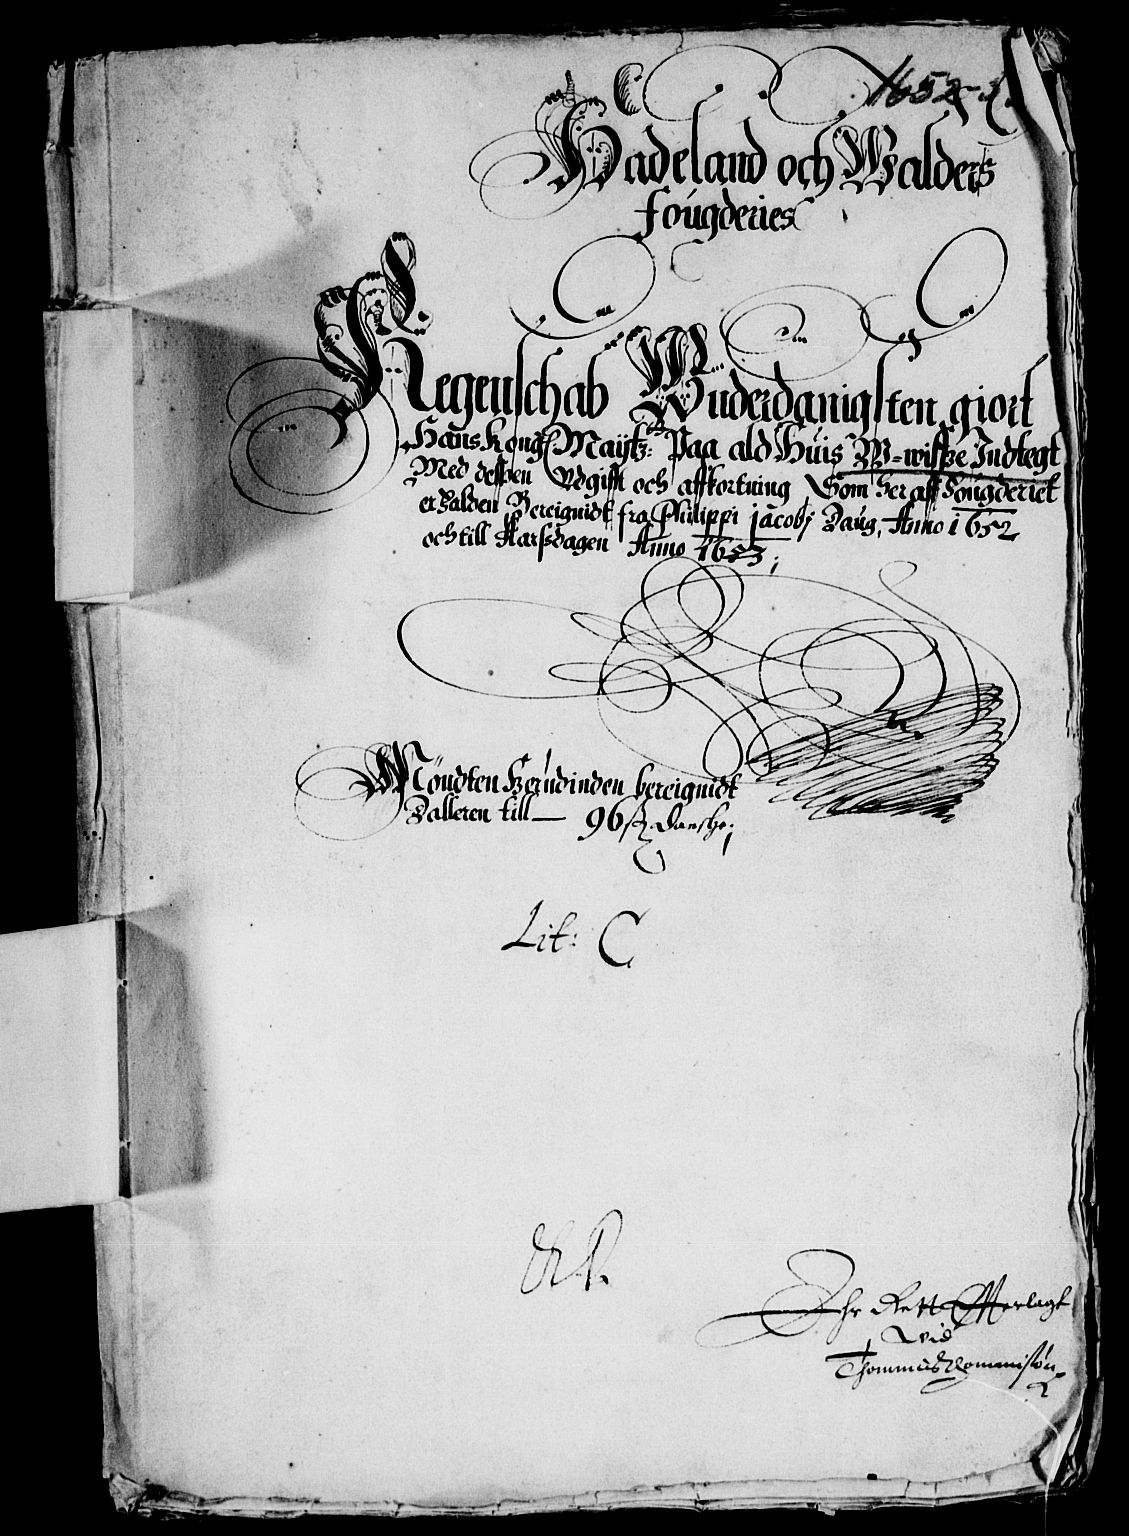 1652-3.
Hadeland och Walders
fougderies
Regenschab Wnderdanigsten giort
Hans Kong: Maÿtz: Paa ald Huis W-wisse Indtegt
Med dessen Wdgifft och affkortning Som her aff fougderiet
er falden Bereignidt fra Philippi jacobj Daug, Anno 1652
och till Aarssdagen Anno 1653;
Möndten herudinden bereignidt
Dalleren till — 96 sz dansche;
Lit: C
Ehr Rett Offuerlagt
wid